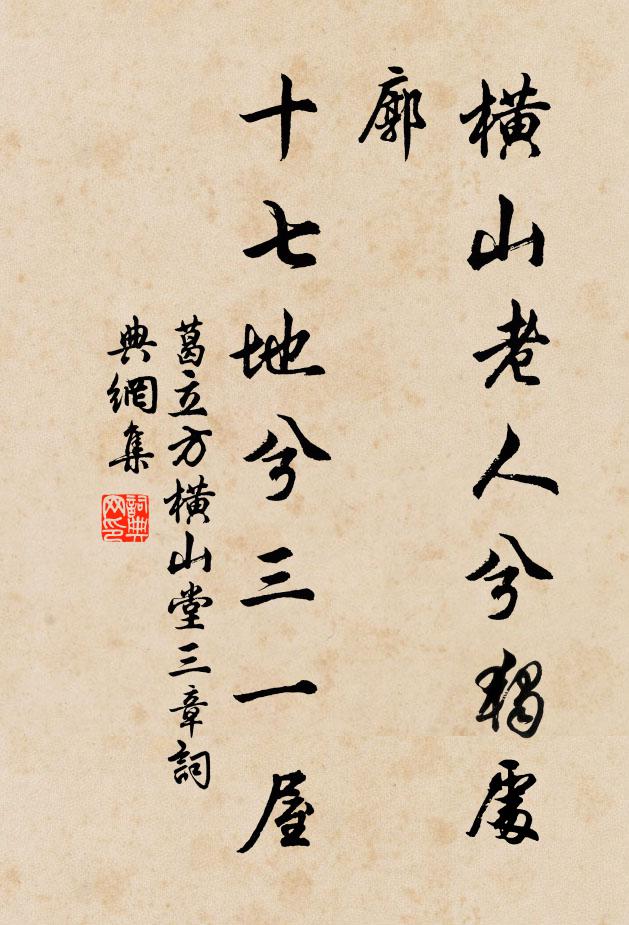 橫山老人兮獨處
廓
十七地兮三一屋
葛立方橫山堂三章詞
典網集
詞典
网印